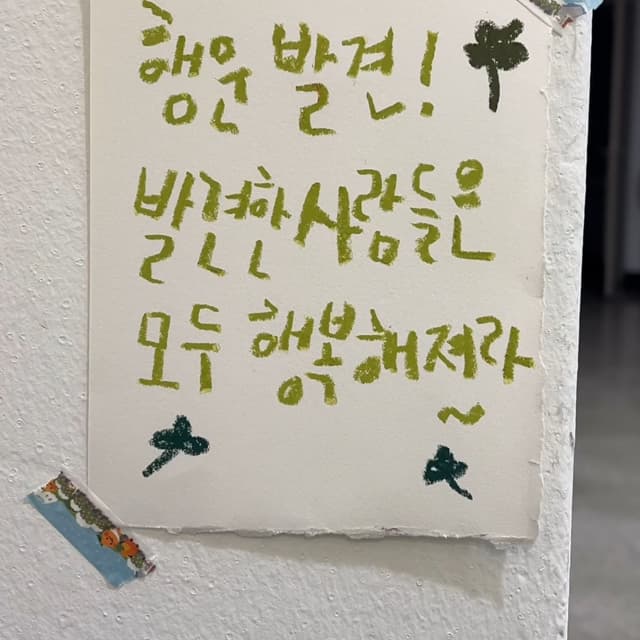 행운 발견!
발견한 사람들은
모두 행복해져라
~